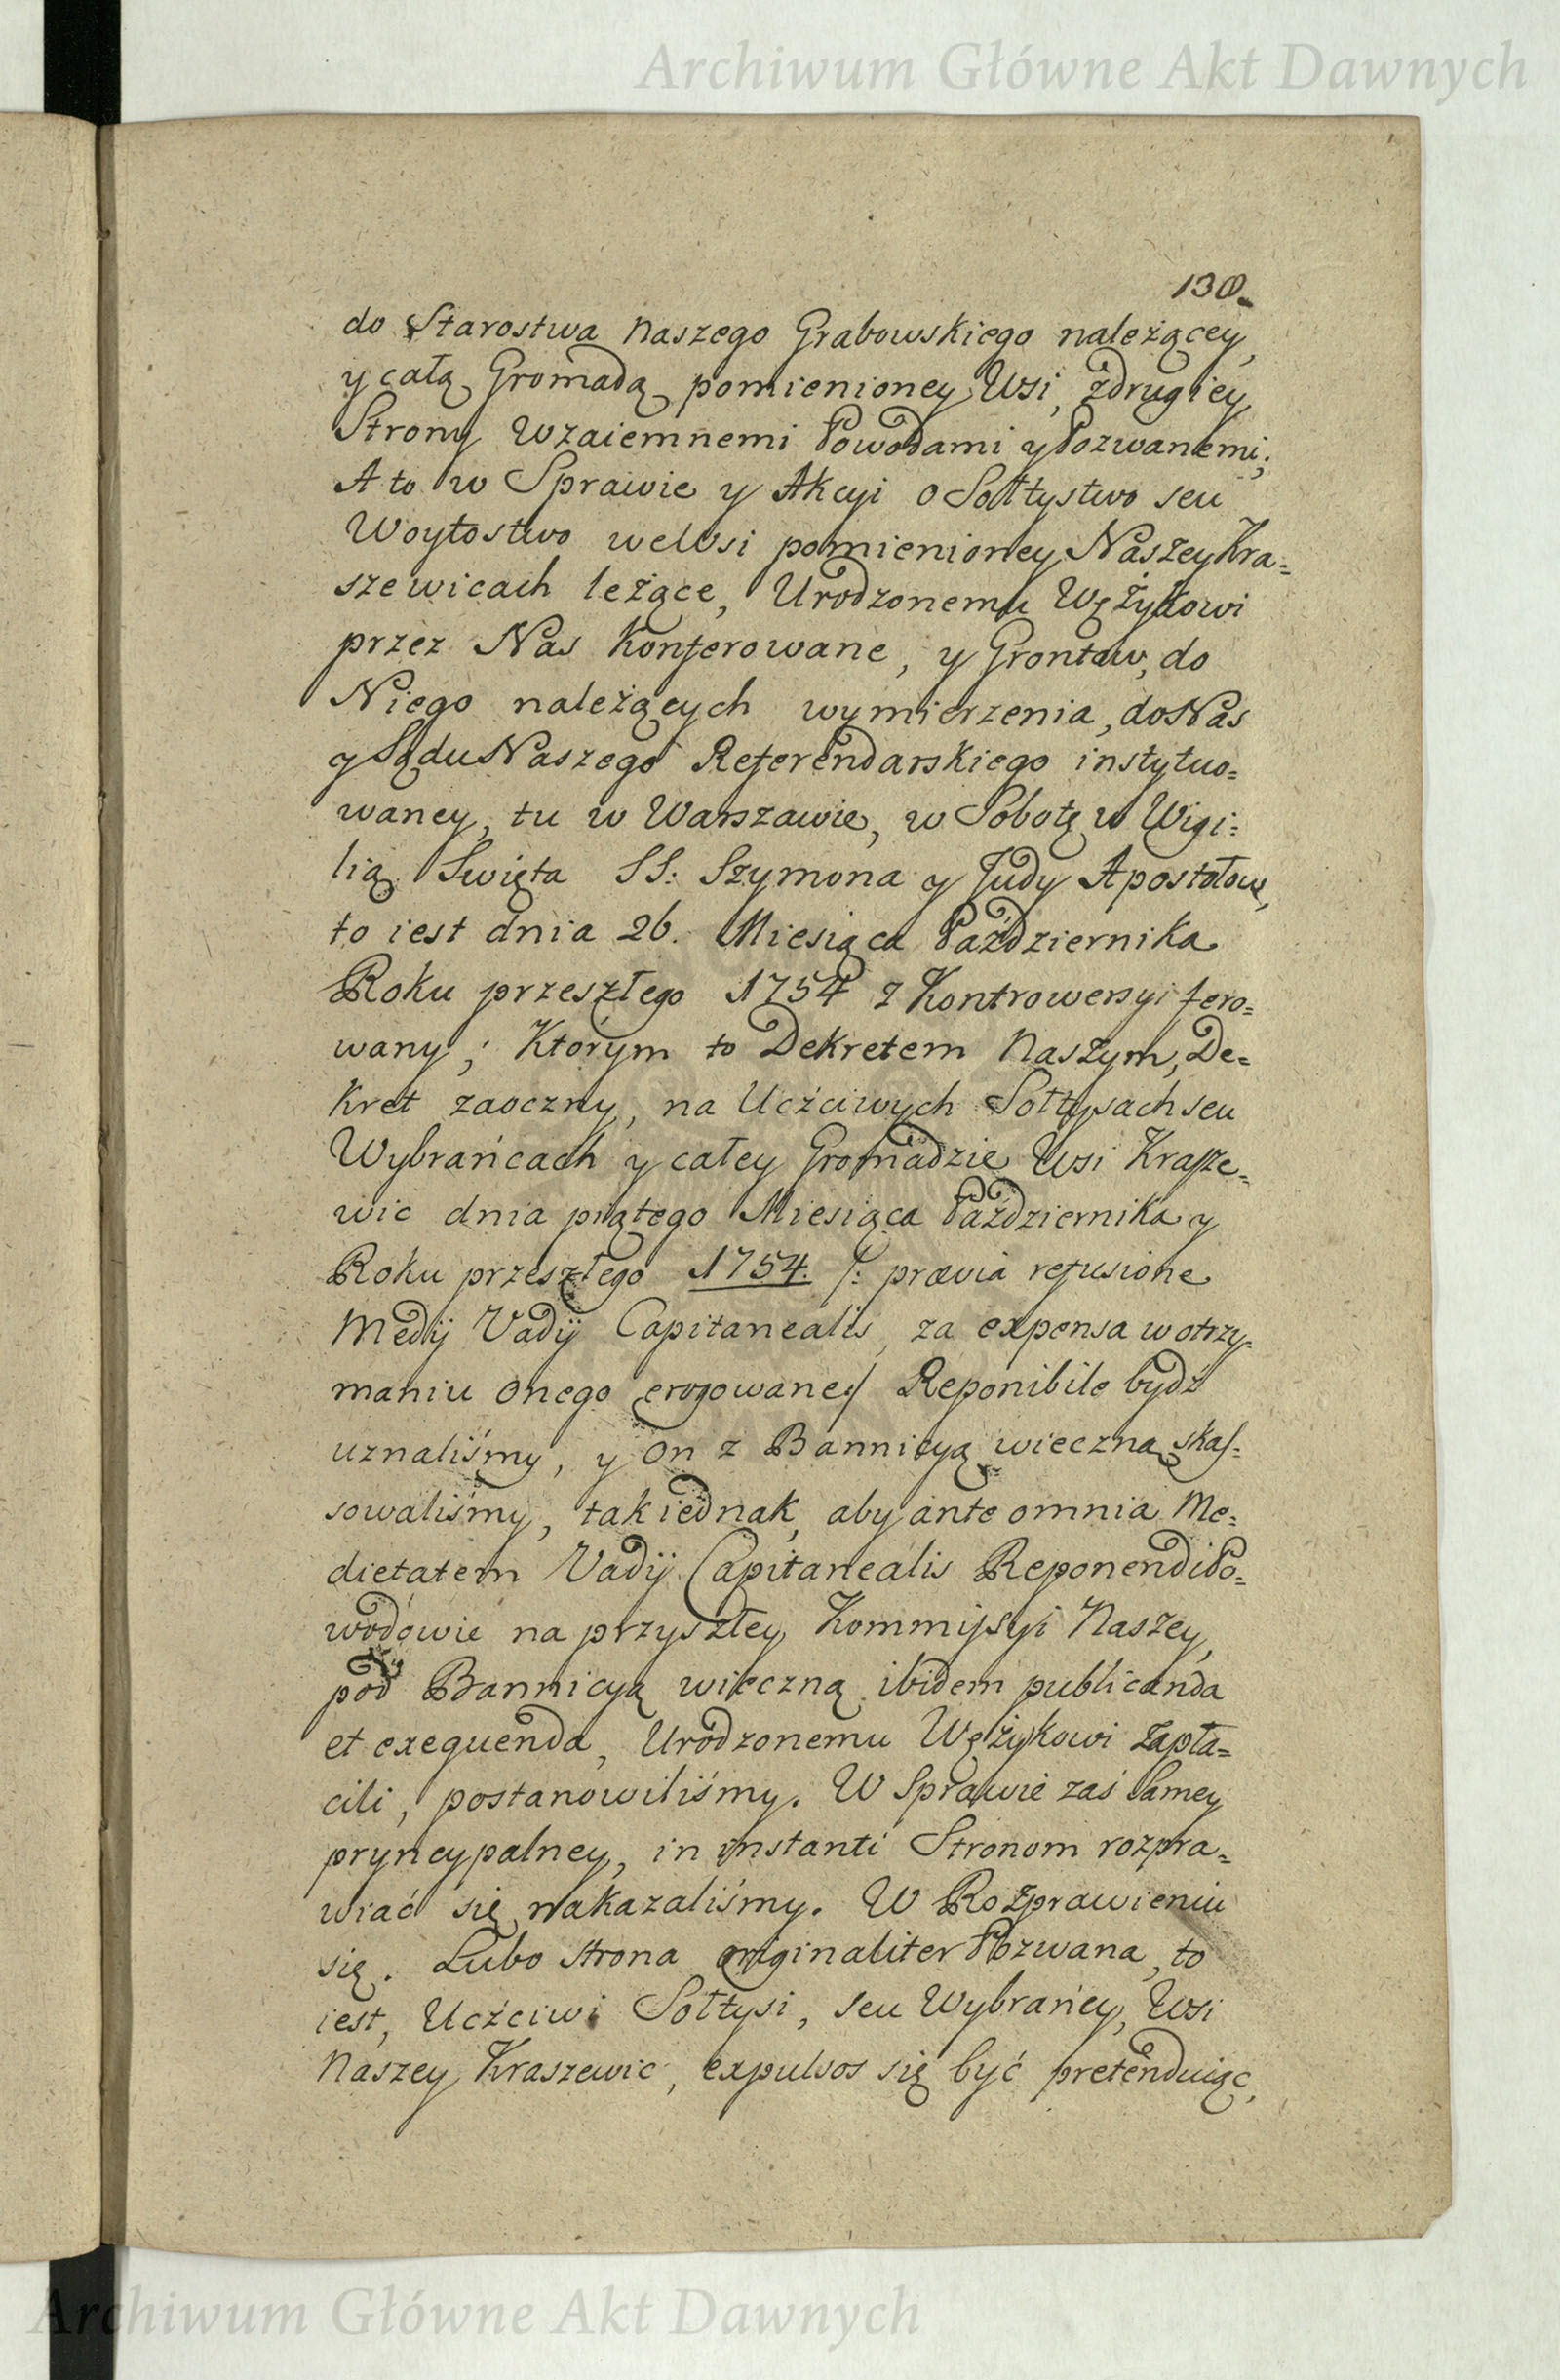 Archiwum Główne Akt Dawnych
130.
do Starostwa Naszego Grabowskiego należącey,
y całą Gromadą pomienioney Wsi, zdrugiey
Strony Wzaiemnemi Powodami y Pozwanemi;
A to w Sprawie y Akcyi o Sołtystwo seu
Woytostwo weWsi pomienioney Naszey Kra=
szewicach leżące, Urodzonemu Wężykowi
przez Nas Konferowane, y Grontow, do
Niego należących wymierzenia, do Nas
y Sądu Naszego Referendarskiego instytuo=
waney, tu w Warszawie, w Sobotę w Wigi=
lią Swięta SS: Szymona y Judy Apostołow,
to iest dnia 26. Miesiąca Października
Roku przeszłego 1754 z Kontrowersyi fero=
wany; Ktorym to Dekretem Naszym, De=
kret zaoczny, na Uczciwych Sołtysach seu
Wybrańcach y całey Gromadzie Wsi Krasze=
wic dnia piątego Miesiąca Października y
Roku przeszłego 1754. /: prævia refusione
Medij Vadij Capitanealis, za expensa w otrzy=
maniu onego erogowane:/ Reponibile bydź
uznaliśmy, y on z Bannicyą wieczną skas=
sowaliśmy, tak iednak, aby ante omnia Me=
dietatem Vadij Capitanealis Reponendi Po=
wodowie na przyszłey Kommissyi Naszey,
pod Bannicyą wieczną ibidem publicanda
et exequenda, Urodzonemu Wężykowi zapła=
cili, postanowiliśmy. W Sprawie zaś samey
pryncypalney, in instanti Stronom rozpra=
wiać się nakazaliśmy. W Rozprawieniu
się. Lubo strona originaliter Pozwana, to
iest, Uczciwi Sołtysi, seu Wybrańcy, Wsi
Naszey Kraszewic, expulsos się być pretenduiąc,
Archiwum Główne Akt Dawnych